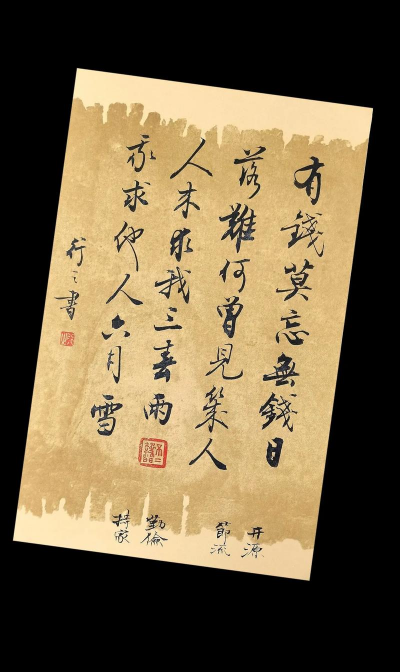 有錢莫忘無錢日
落難何曾見幾人
人来求我三春雨
我求他人六月雪
行之書
开源
節流
勤儉
持家